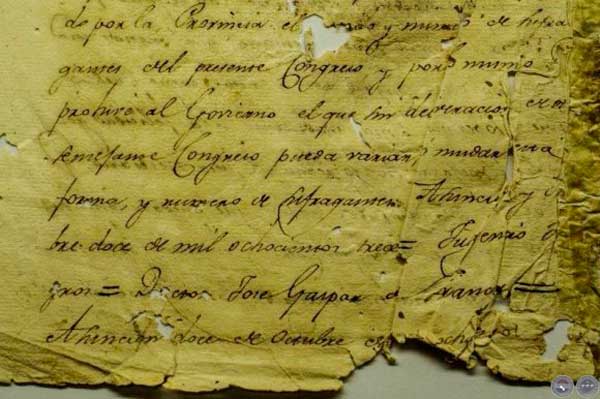 do por la Provincia el modo y numero de sufra
gantes del presente Congreso y por lo mismo se
prohive al Govierno el que sin deliveracion de
semejante Congreso pueda variar, mudar esta
forma, y numero de sufragantes. Asuncion y
bre doce de mil ochocientos trece= Fulgencio
gros= Doctor Jose Gaspar de Francia=
Asuncion doce de Octubre de